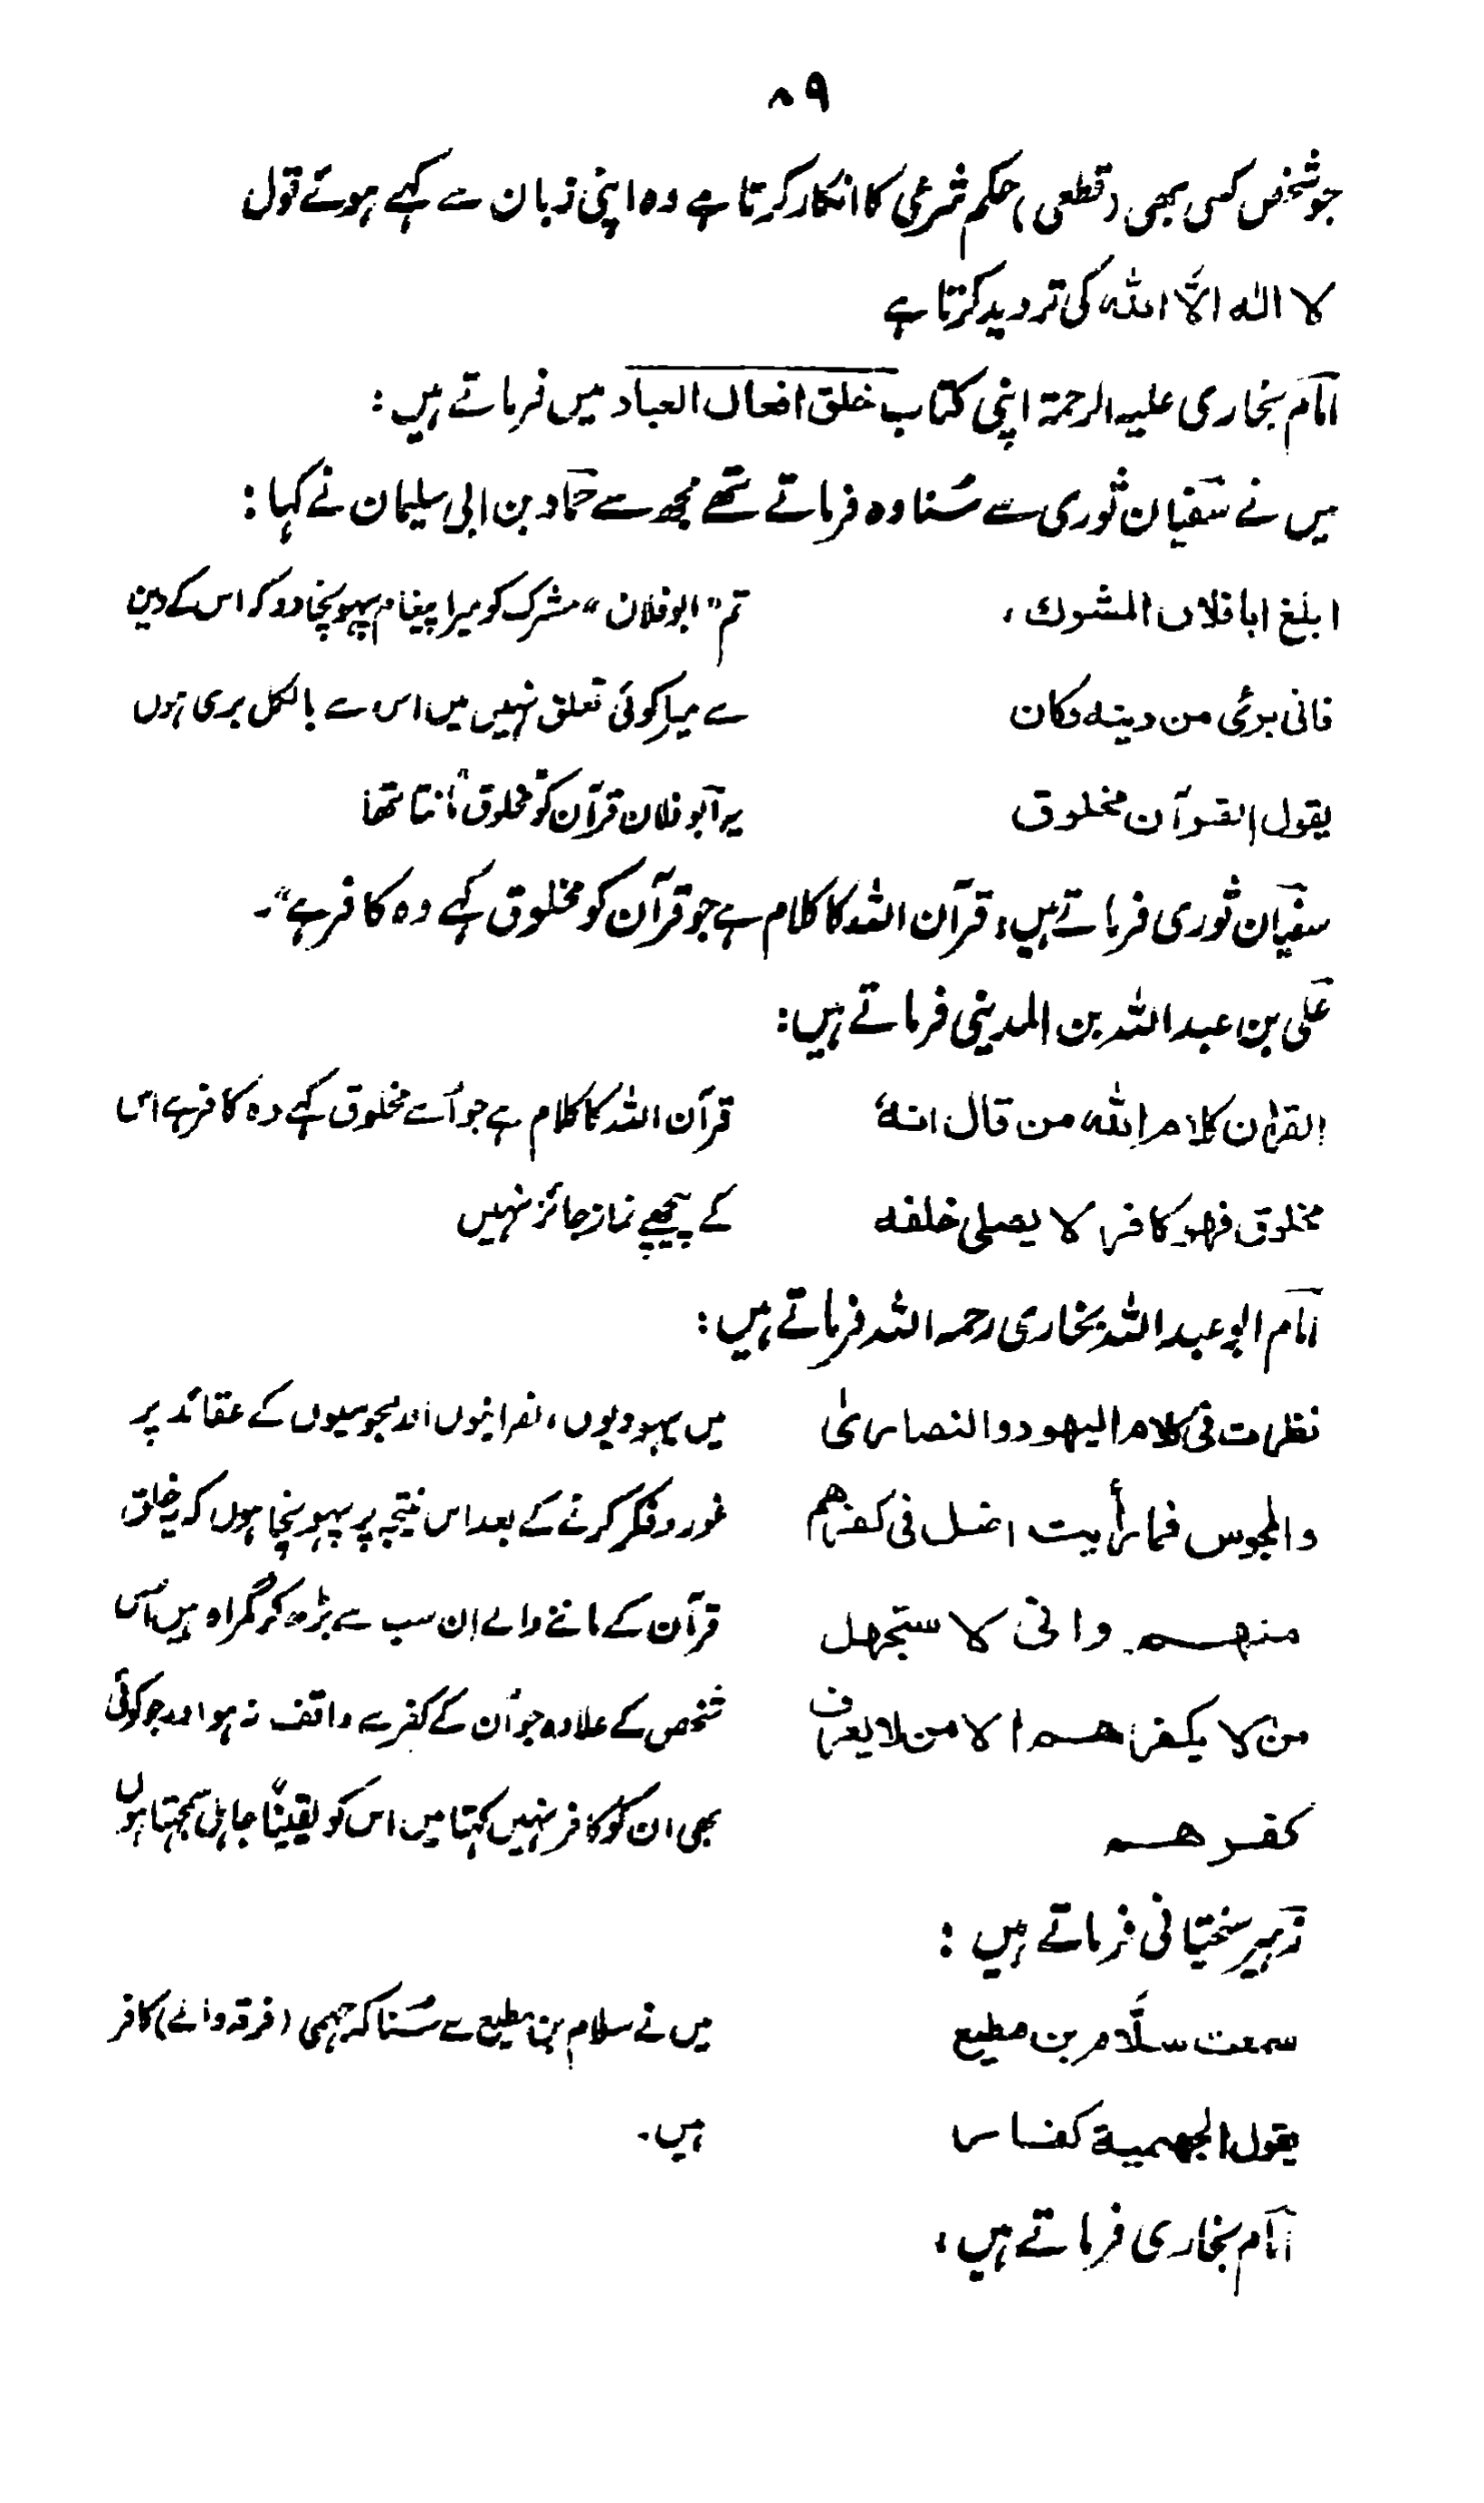 ۸۹
جو شخص کسی بھی (قطعی) حکم شرعی کا انکار کرتا ہے وہ اپنی زبان سے کہے ہوئے قول
لا الٰہ الّا اللہ کی تردید کرتا ہے
امام بخاری علیہ الرحمۃ اپنی کتاب خلق افعال العباد میں فرماتے ہیں:
میں نے سفیان ثوری سے سُنا وہ فرماتے تھے مجھ سے حماد بن ابی سلیمان نے کہا:
ابلغ ابا فلان المشرك، تم "ابو فلان" مشرک کو میرا پیغام پہونچا دو کہ اس کے دین
فانی برئ من دینه وکان سے میرا کوئی تعلق نہیں میں اس سے بالکل بری ہوں
یقول القرآن مخلوق یہ ابو فلان قرآن کو مخلوق مانتا تھا
سفیان ثوری فرماتے ہیں، قرآن اللہ کا کلام ہے جو قرآن کو مخلوق کہے وہ کافر ہے"۔
علی بن عبد اللہ بن المدینی فرماتے ہیں:
القرآن كلام الله من قال انهٗ قرآن اللہ کا کلام ہے جو اُسے مخلوق کہے وہ کافر ہے اس
مخلوق فهو كافر لا یصلی خلفه کے پیچھے نماز جائز نہیں
امام ابو عبد اللہ بخاری رحمہ اللہ فرماتے ہیں:
نظرت فی كلام الیهود والنصاریٰ میں یہودیوں، نصرانیوں اور مجوسیوں کے عقائد پر
والمجوس فما رأیت اضل فی كفرهم غور و فکر کرنے کے بعد اس نتیجہ پر پہونچا ہوں کہ یہ خلق
منهم وانی لا ستجهل قرآن کے ماننے والے ان سب سے بڑھ کر گمراہ ہیں اس
من لا یكفرهم الا من لا یعرف شخص کے علاوہ جو اُن کے کفر سے واقف نہ ہو اور جو کوئی
كفرهم بھی ان کو کافر نہیں کہتا میں اس کو یقیناً جاہل سمجھتا ہوں
زہیر سختیانی فرماتے ہیں:
سمعت سلّام بن مطیع میں نے سلام بن مطیع سے سُنا کہ جہمی (فرقہ والے) کافر
یقول الجهمیة كفار ہیں۔
امام بخاری فرماتے ہیں،